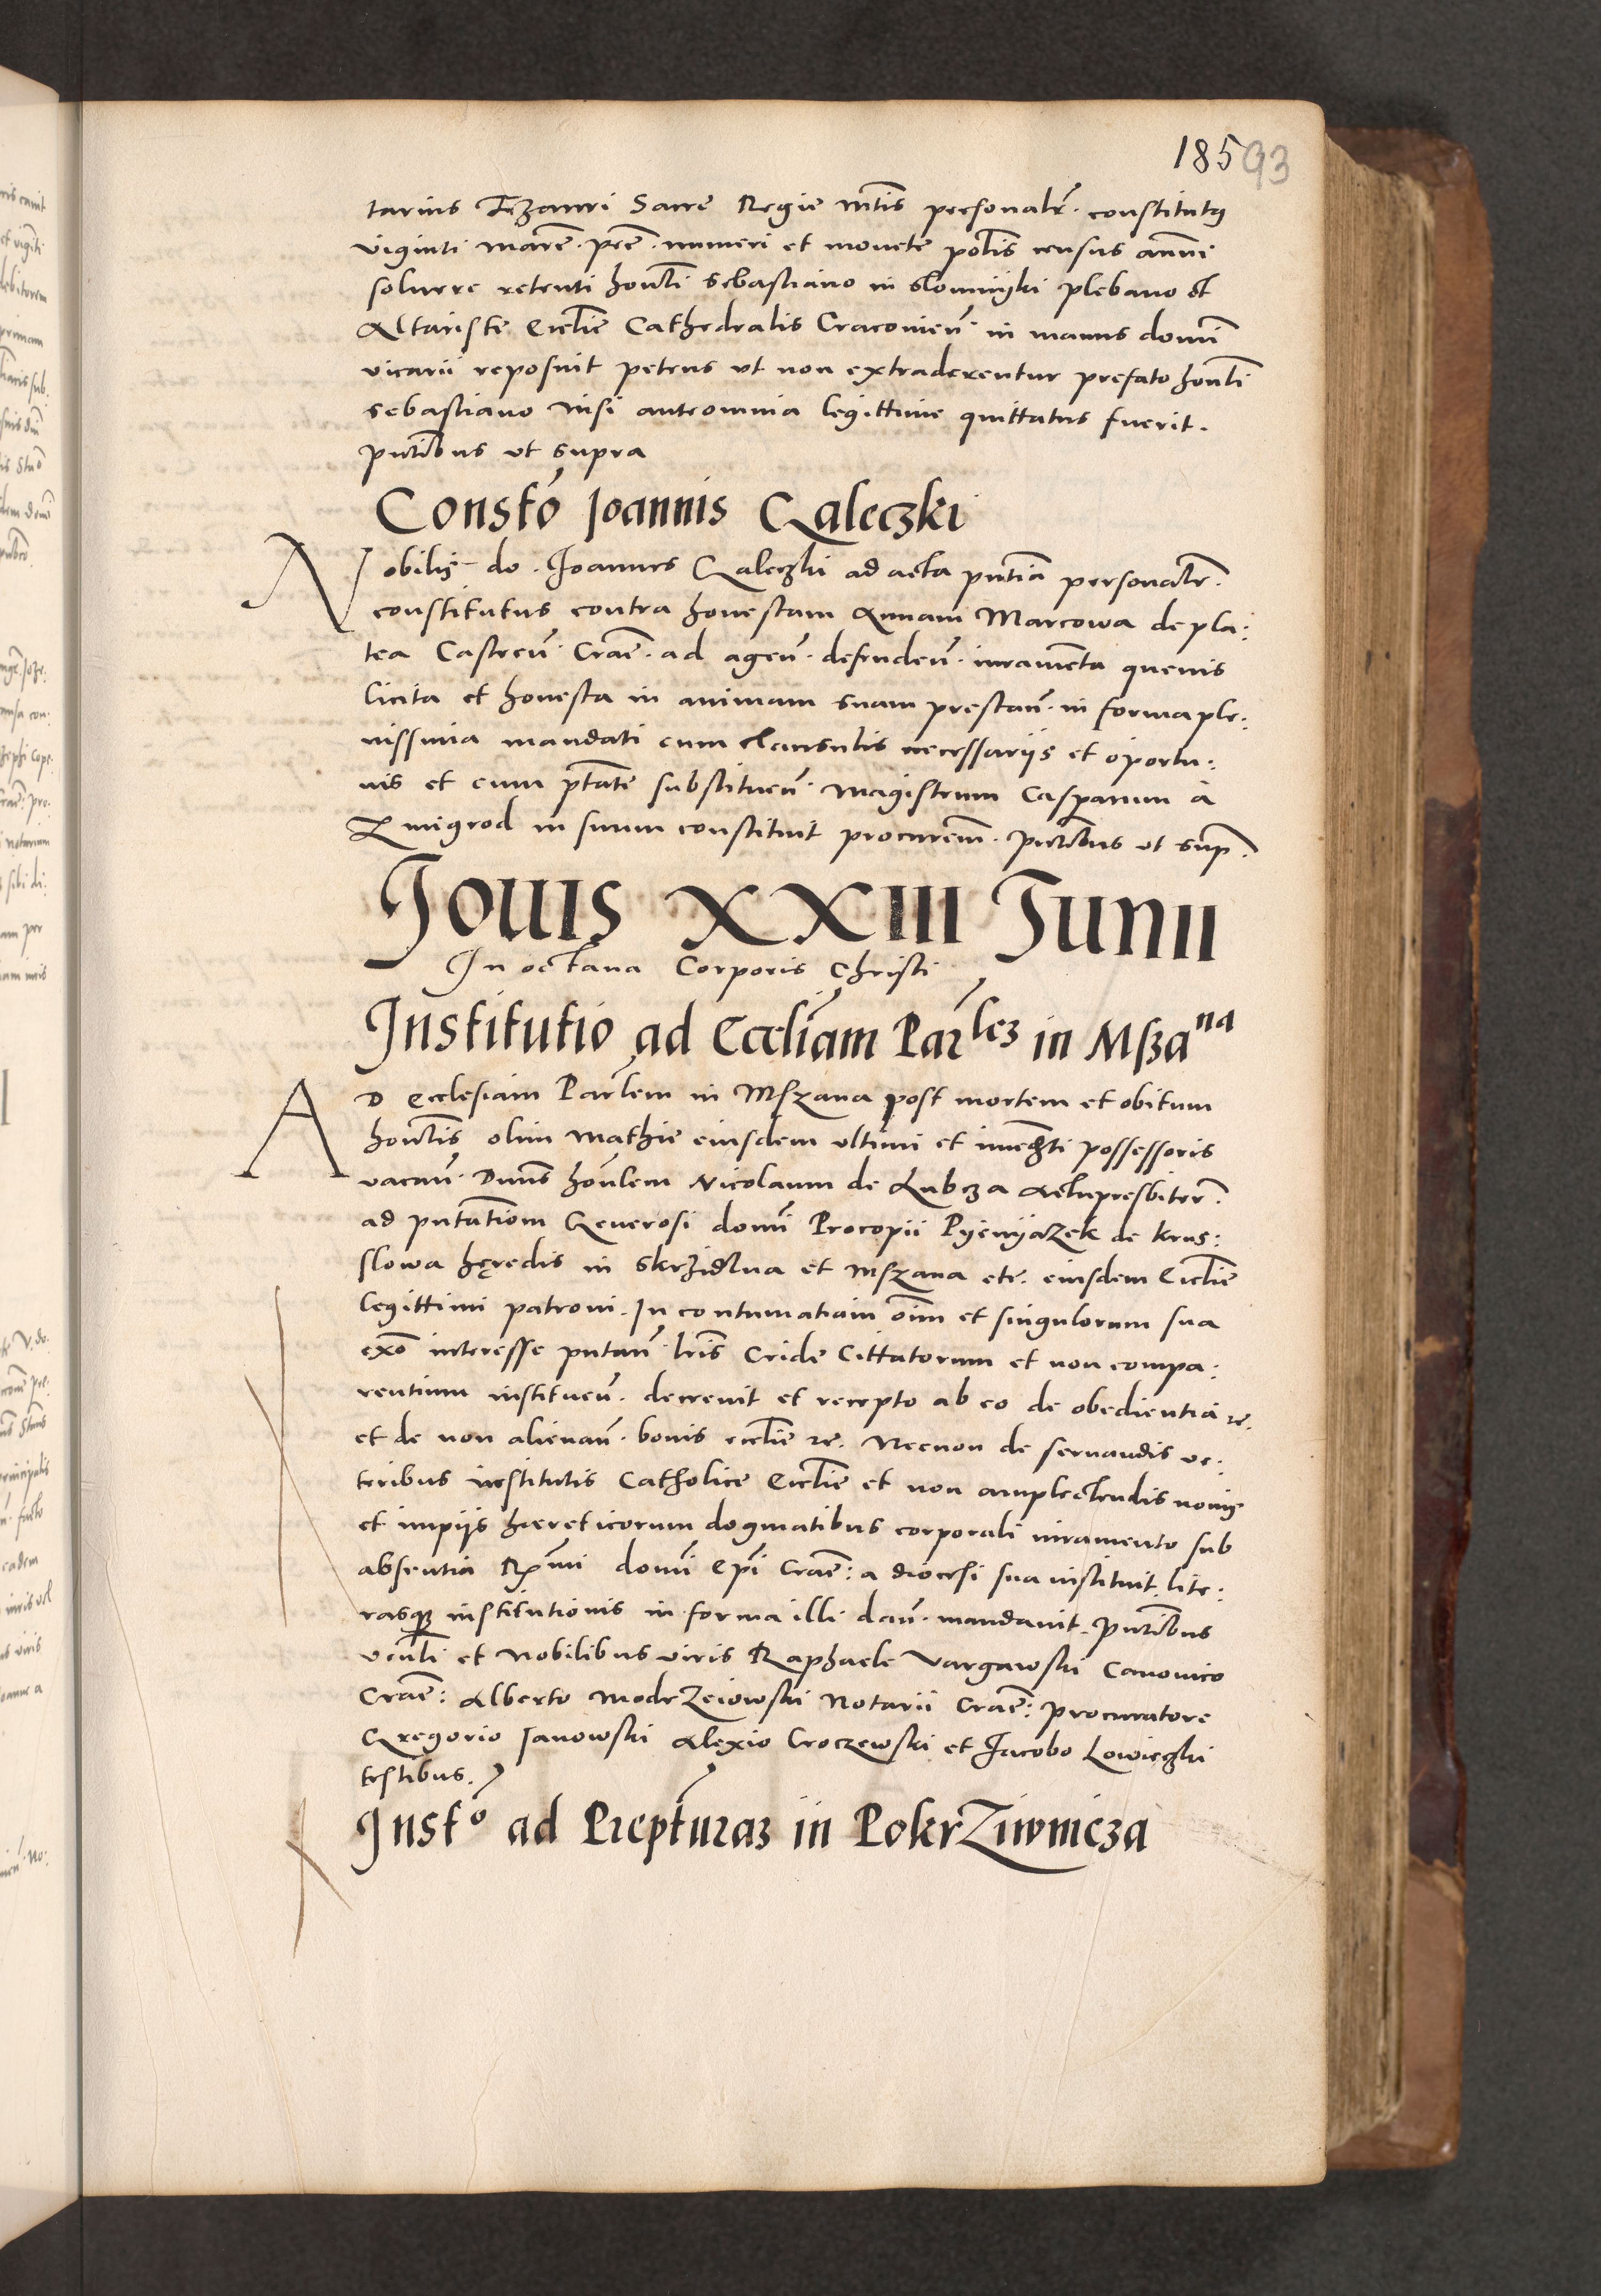 18593
tarius Thezauri Sacre Regie mtis personalr. constitutus
viginti marc. pec. numeri et monete polis census annui
soluere retenti honti Sebastiano in Slomniki plebano et
Altariste Ecclie Cathedralis Cracovien. in manus domi
vicarii reposuit petens ut non extraderentur prefato honli
Sebastiano nisi anteomnia legittime quittatus fuerit.
pntibus ut supra
Consto Joannis Galeczki
Nobilis do. Joannes Galeczki ad acta pntia personalr.
constitutus contra honestam Annam Marcowa de pla:
tea Castren. Crac. ad agen. defenden. iuramenta quevis
licita et honesta in animam suam prestan. in forma ple:
nissima mandati cum clausulis necessariis et oportu:
nis et cum ptate substituen. Magistrum Casparum à
Zmigrod in suum constituit procurem. pntibus ut sup.
Jouis XXIII Junii
In octaua Corporis Christi
Institutio ad Eccliam Parlez in Mszana
AD Ecclesiam Parlem in Mszana post mortem et obitum
hontis olim Mathie eiusdem ultimi et immediati possessoris
vacan. Dnus honlem Nicolaum de Lubcza Actupresbiter.
ad pntationem Generosi domi Procopii Pyenyazek de Krus:
slowa hęredis in Skrzidlna et Mszana etc. eiusdem Ecclie
legittimi patroni. In contumatiam oim et singulorum sua
exo interesse putan. lris Cride Cittatorum et non compa:
rentium instituen. decreuit et recepto ab eo de obedientia etc.
et de non alienan. bonis ecclie etc. Necnon de seruandis ve:
teribus institutis Catholice Ecclie et non amplectendis nouis
et impiis hereticorum dogmatibus corporali iuramento sub
absentia Rmi domi Epi Crac: a diocesi sua instituit lite:
rasque institutionis in forma illi dan. mandauit. Pntibus
venli et Nobilibus viris Raphaele Vargawski Canonico
Crac: Alberto Modrzeiowski Notarii Crac: procuratore
Gregorio Janowski Alexio Croczewski et Jacobo Lowieczki
testibus.
Insto ad Prepturaz in Pokrziwnicza